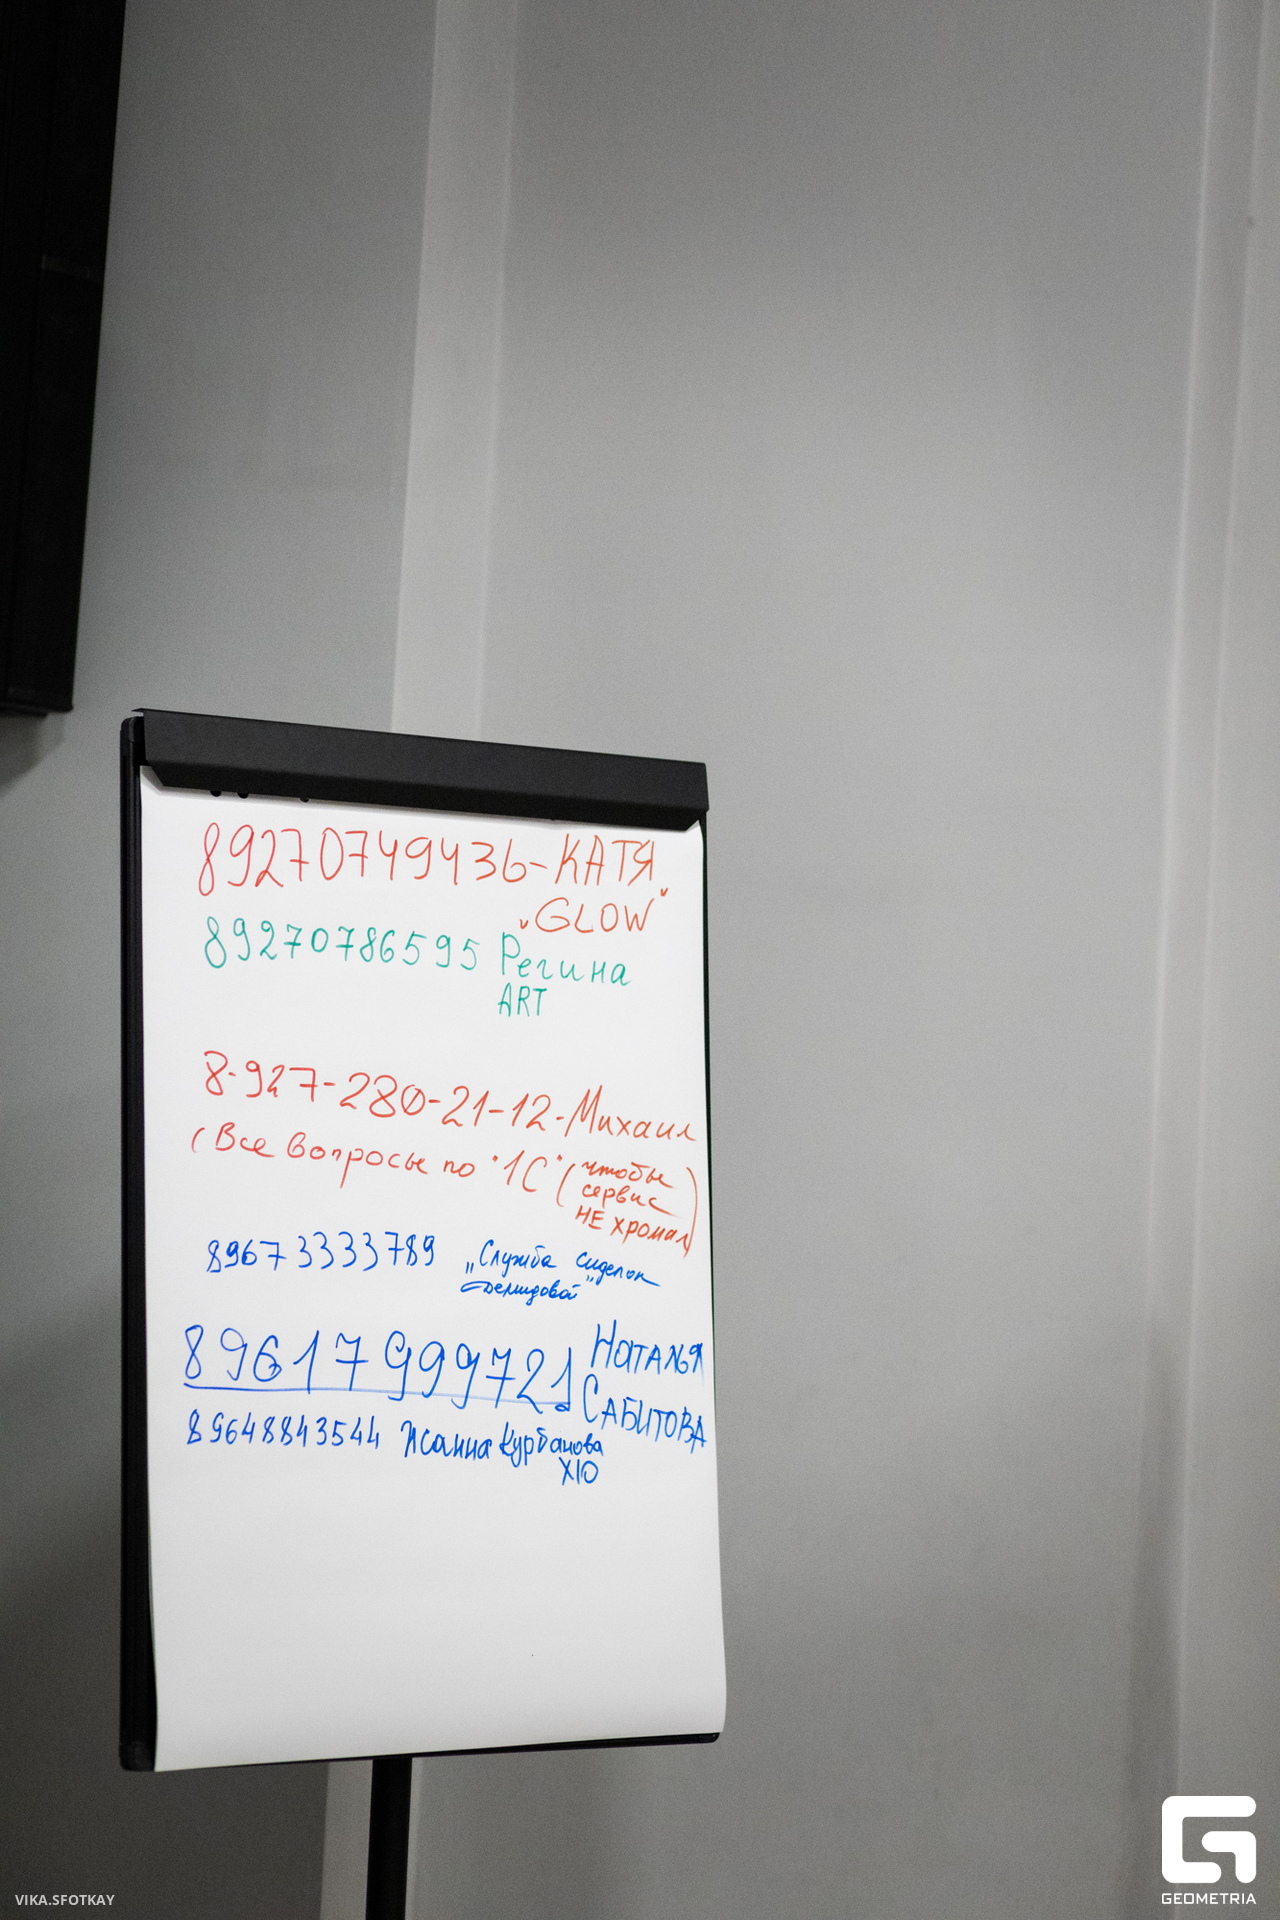 89270749436-КАТЯ
„GLOW"
89270786595 Регина
ART
8-927-280-21-12-Михаил
(Все вопросы по "1С" (чтобы
сервис
НЕ хромал)
89673333789 „Служба сиделок
Демидовой"
89617999721 Наталья
Сабитова
89648843544 Жанна Курбанова
ХЮ
VIKA.SFOTKAY
GEOMETRIA